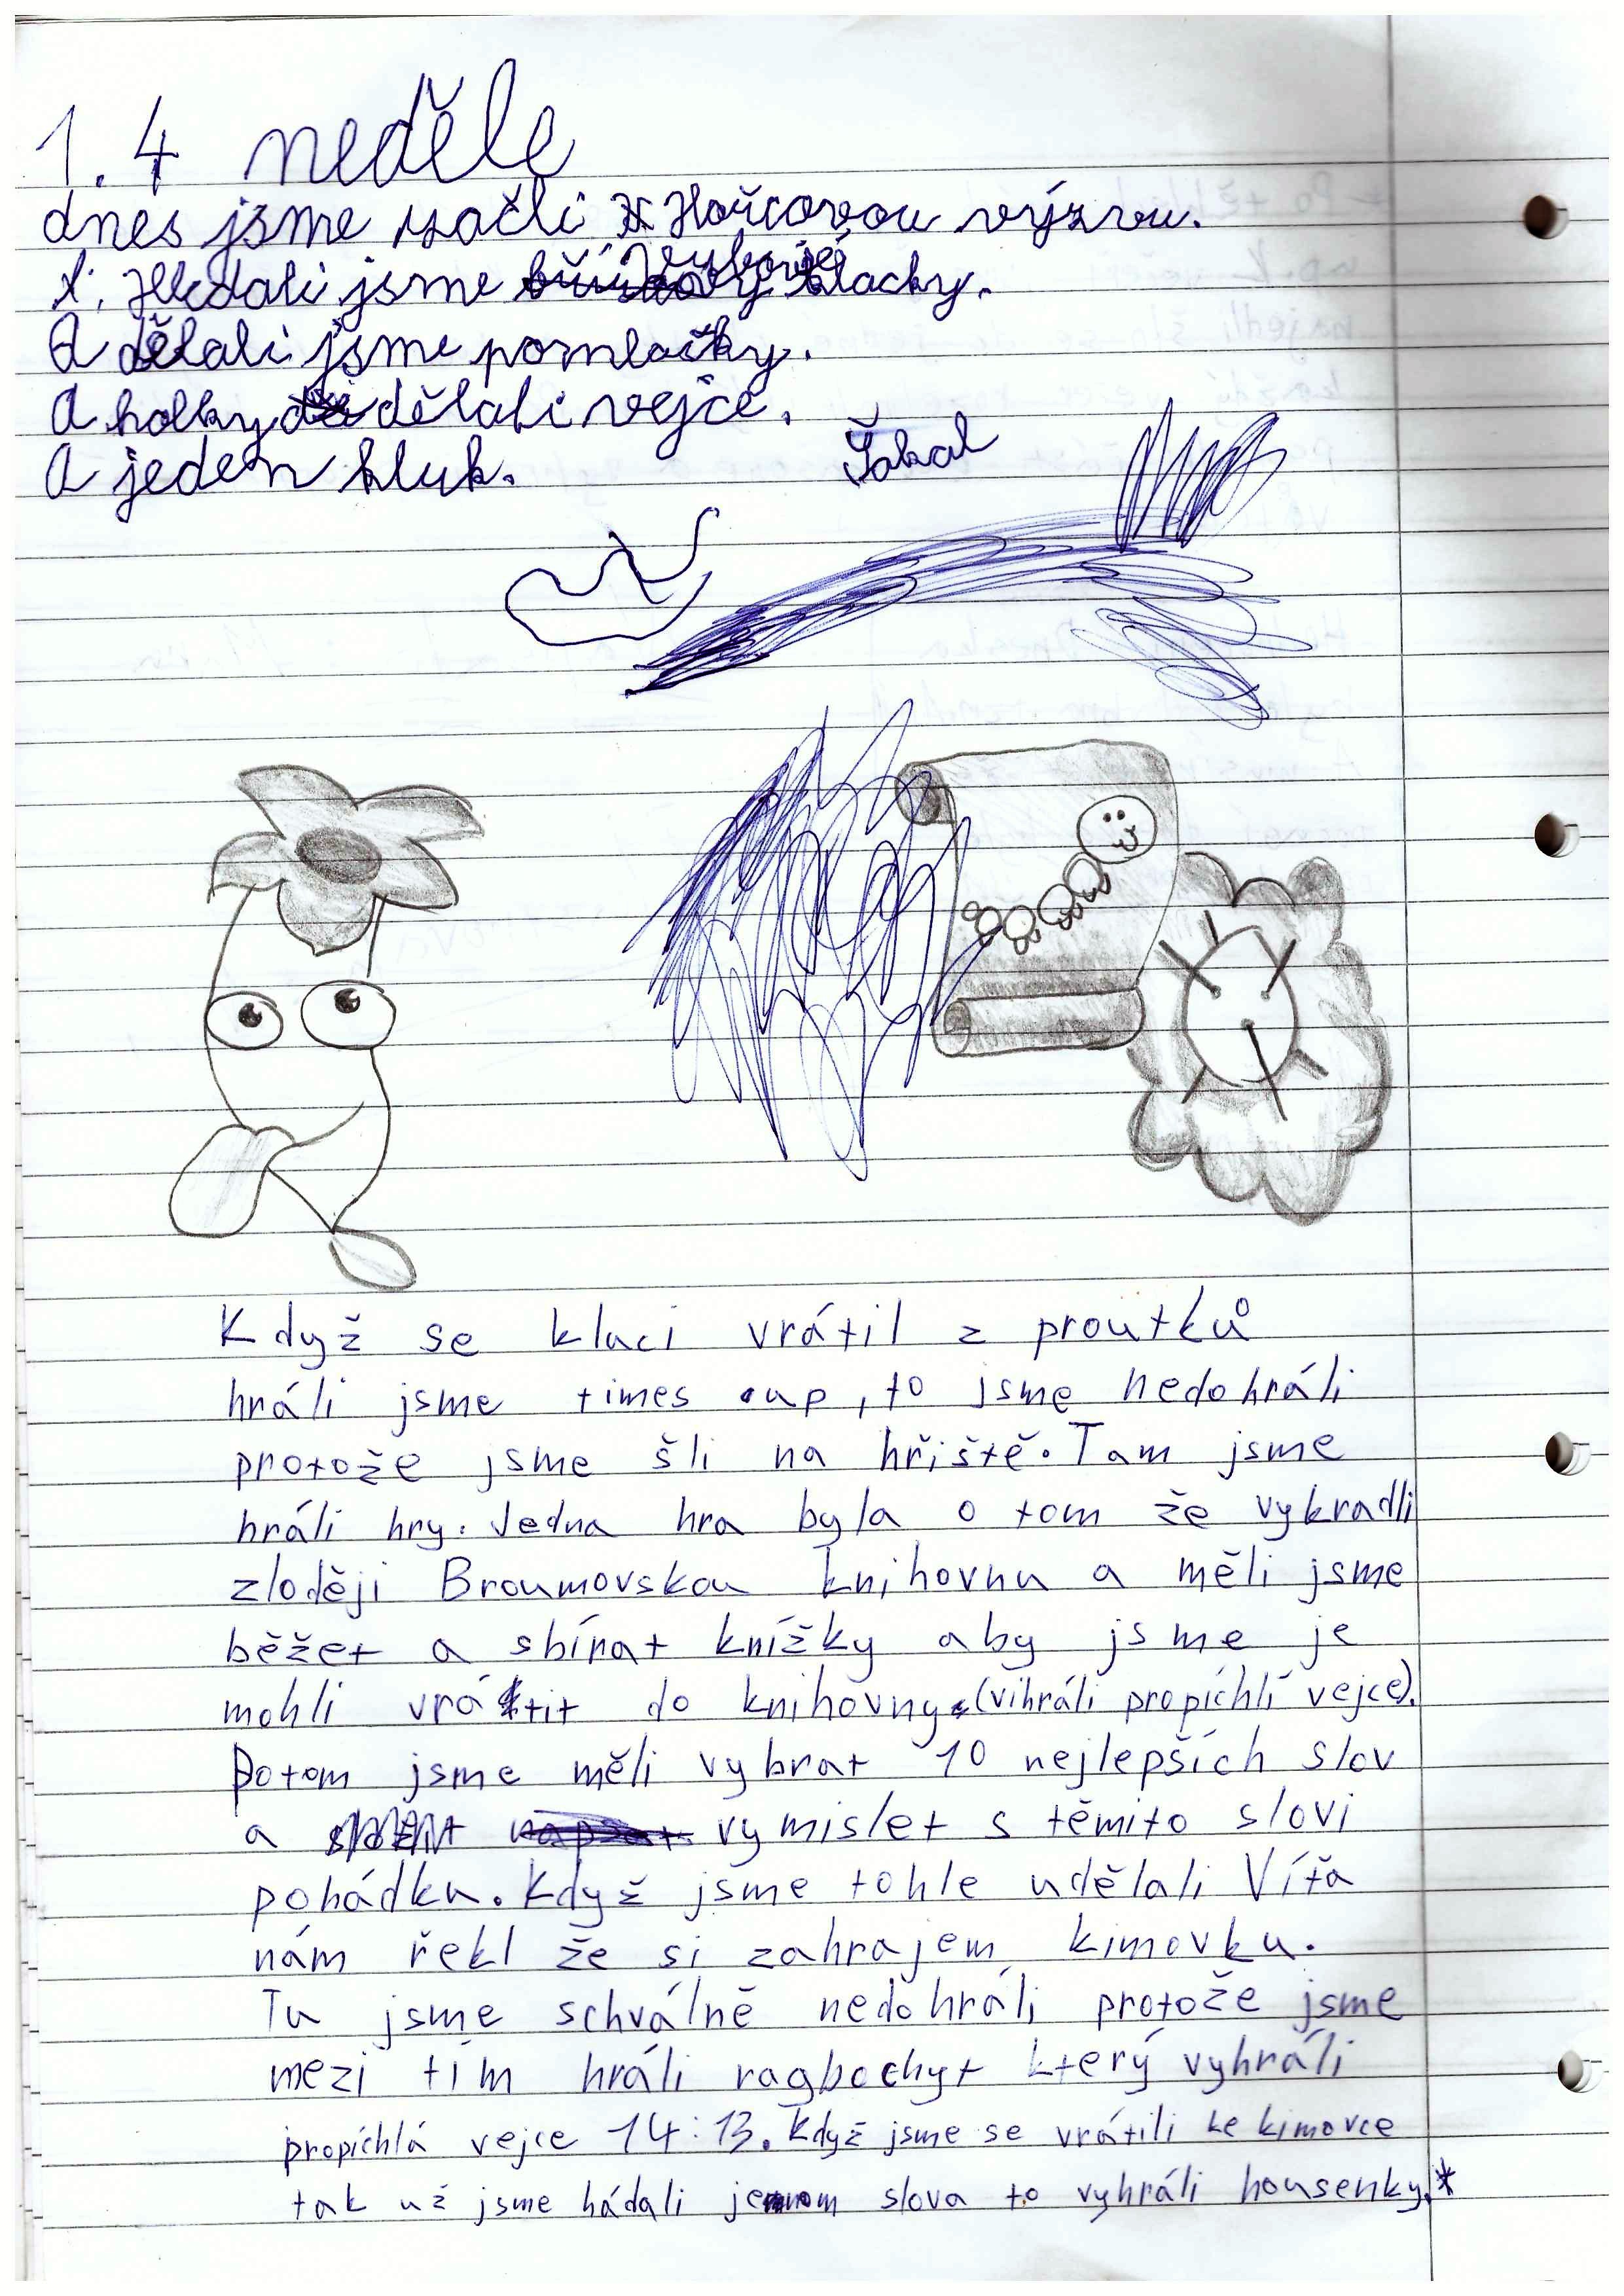 1.4 neděle
dnes jsme začli Hořcovou výzvu.
1. Hledali jsme vrbový klacky.
A dělali jsme pomlazky.
A holky dělali vejce.
A jeden kluk. Šakal
Když se kluci vrátil z proutků
hráli jsme times up, to jsme nedohráli
protože jsme šli na hřiště. Tam jsme
hráli hry. Jedna hra byla o tom že vykradli
zloději Broumovskou knihovnu a měli jsme
běžet a sbírat knížky aby jsme je
mohli vrátit do knihovny. (vihráli propíchlí vejce).
Potom jsme měli vybrat 10 nejlepších slov
a vymislet s těmito slovi
pohádku. Když jsme tohle udělali Víťa
nám řekl že si zahrajem kimovku.
Tu jsme schválně nedohráli protože jsme
mezi tím hráli ragbochyt který vyhráli
propíchlá vejce 14:13. Když jsme se vrátili ke kimovce
tak už jsme hádali jenom slova to vyhráli housenky.*